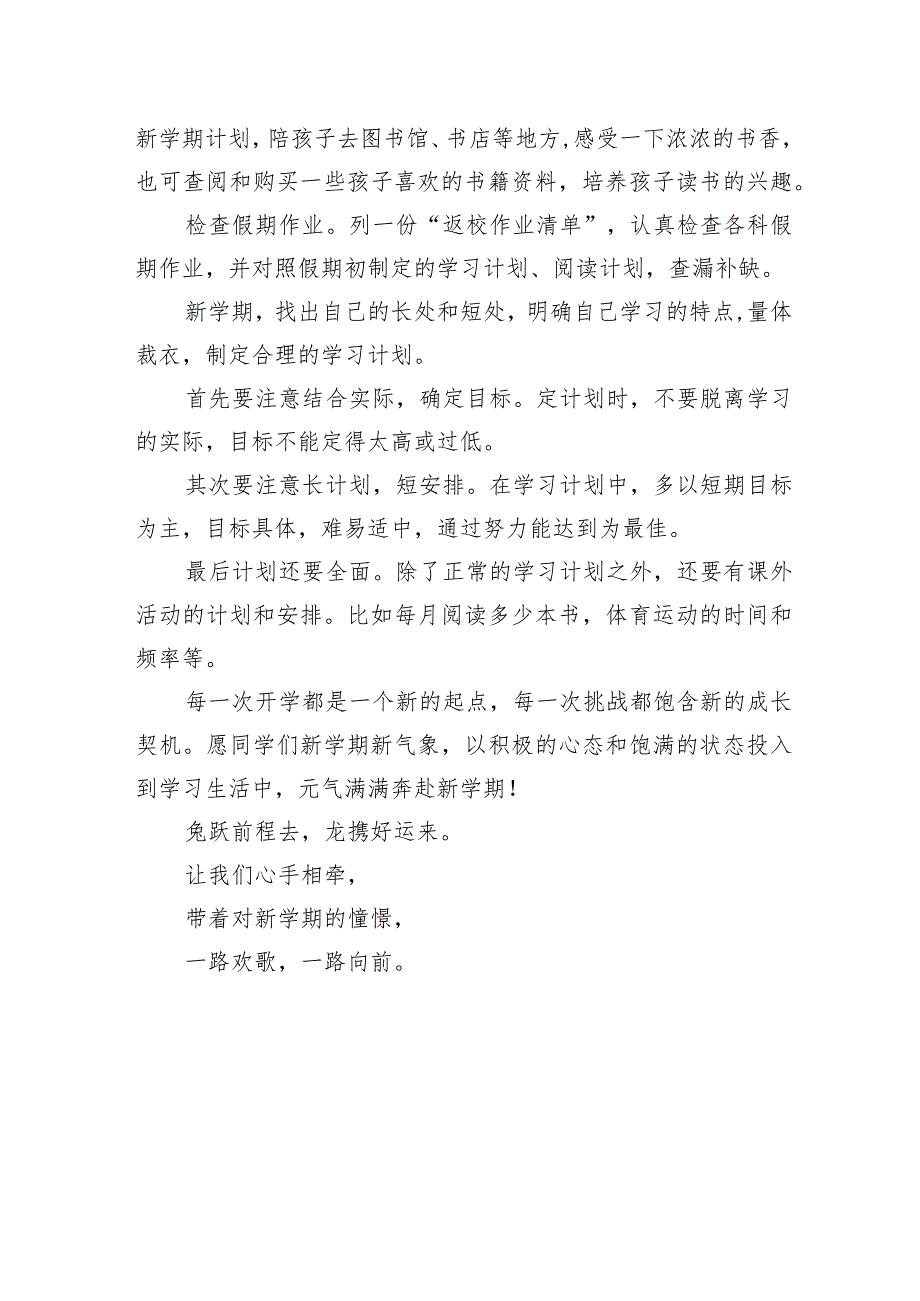 新学期计划，陪孩子去图书馆、书店等地方,感受一下浓浓的书香，
也可查阅和购买一些孩子喜欢的书籍资料，培养孩子读书的兴趣。
检查假期作业。列一份“返校作业清单”，认真检查各科假
期作业，并对照假期初制定的学习计划、阅读计划，查漏补缺。
新学期，找出自己的长处和短处，明确自己学习的特点,量体
裁衣，制定合理的学习计划。
首先要注意结合实际，确定目标。定计划时，不要脱离学习
的实际，目标不能定得太高或过低。
其次要注意长计划，短安排。在学习计划中，多以短期目标
为主，目标具体，难易适中，通过努力能达到为最佳。
最后计划还要全面。除了正常的学习计划之外，还要有课外
活动的计划和安排。比如每月阅读多少本书，体育运动的时间和
频率等。
每一次开学都是一个新的起点，每一次挑战都饱含新的成长
契机。愿同学们新学期新气象，以积极的心态和饱满的状态投入
到学习生活中，元气满满奔赴新学期！
兔跃前程去，龙携好运来。
让我们心手相牵，
带着对新学期的憧憬，
一路欢歌，一路向前。